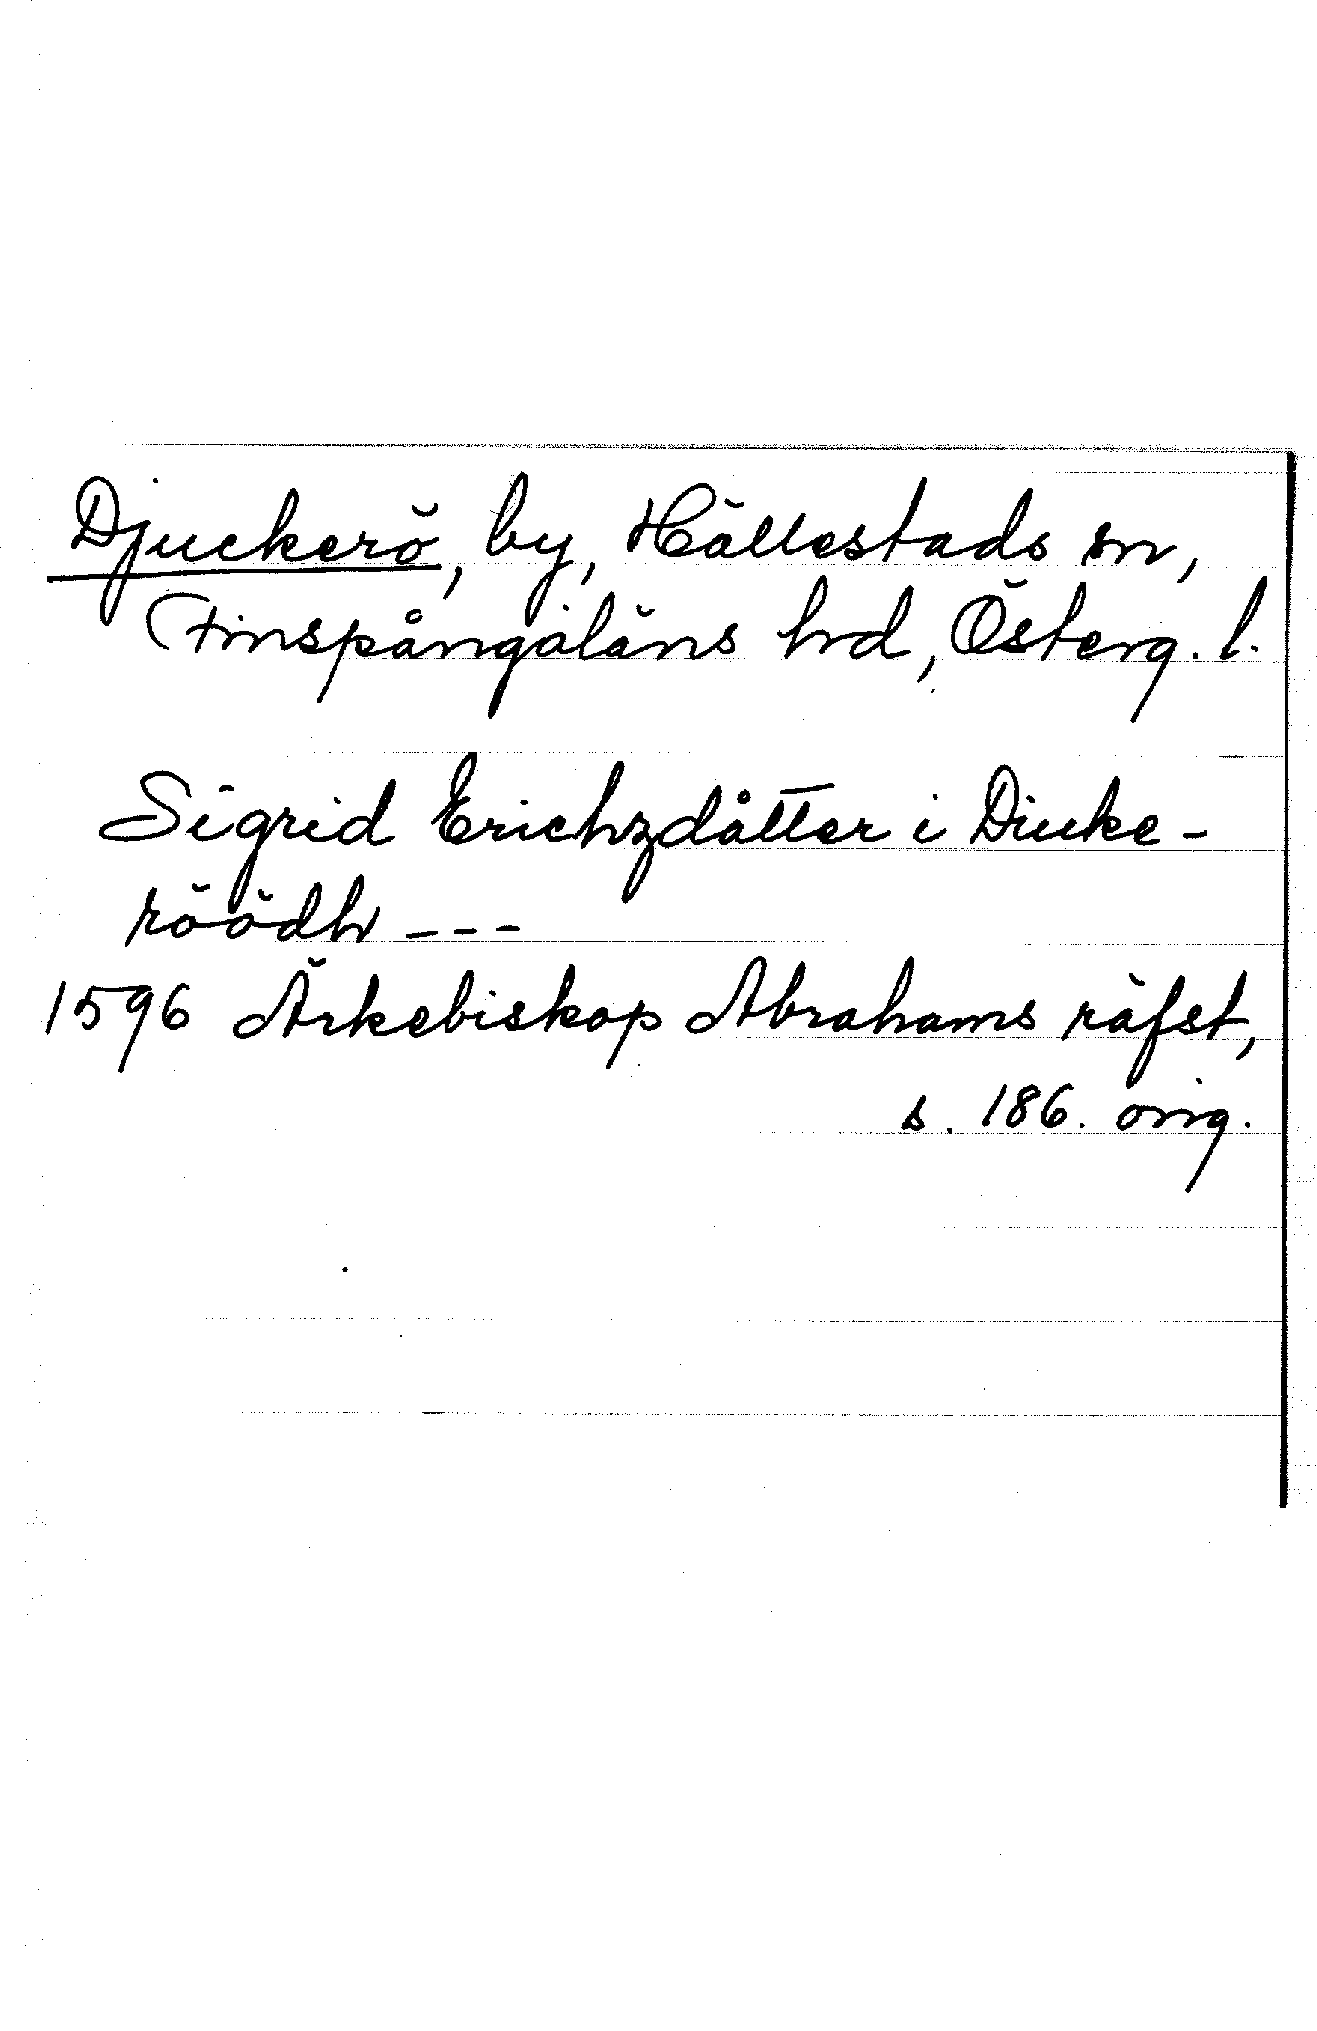 Djuckerö, by, Hällestads sn,
Finspångaläns hrd, Österg. l.
Sigrid Erichzdåtter i Diuke-
röödh ---
1596 Ärkebiskop Abrahams räfst,
s. 186. orig.